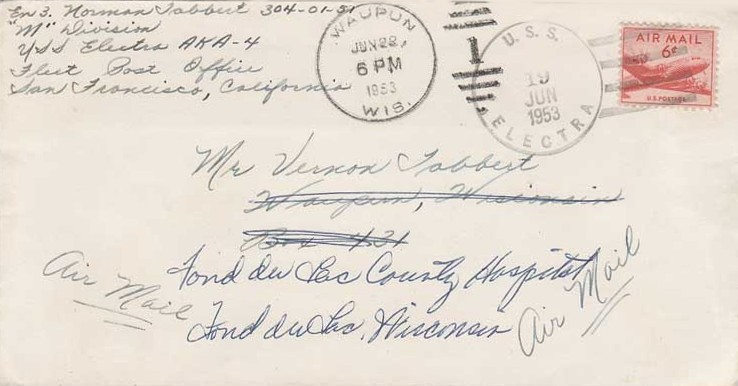 En3. Norman Tabbert 304-01-51
"M" Division
USS Electra AKA-4
Fleet Post Office
San Francisco, California
WAUPUN
JUN 22,
6 PM
1953
WIS.
1
U.S.S.
19
JUN
1953
ELECTRA
AIR MAIL
6¢
U.S. POSTAGE
Mr Vernon Tabbert
Waupun, Wisconsin
Box 431
Fond du Lac County Hospital
Fond du Lac, Wisconsin
Air Mail
Air Mail